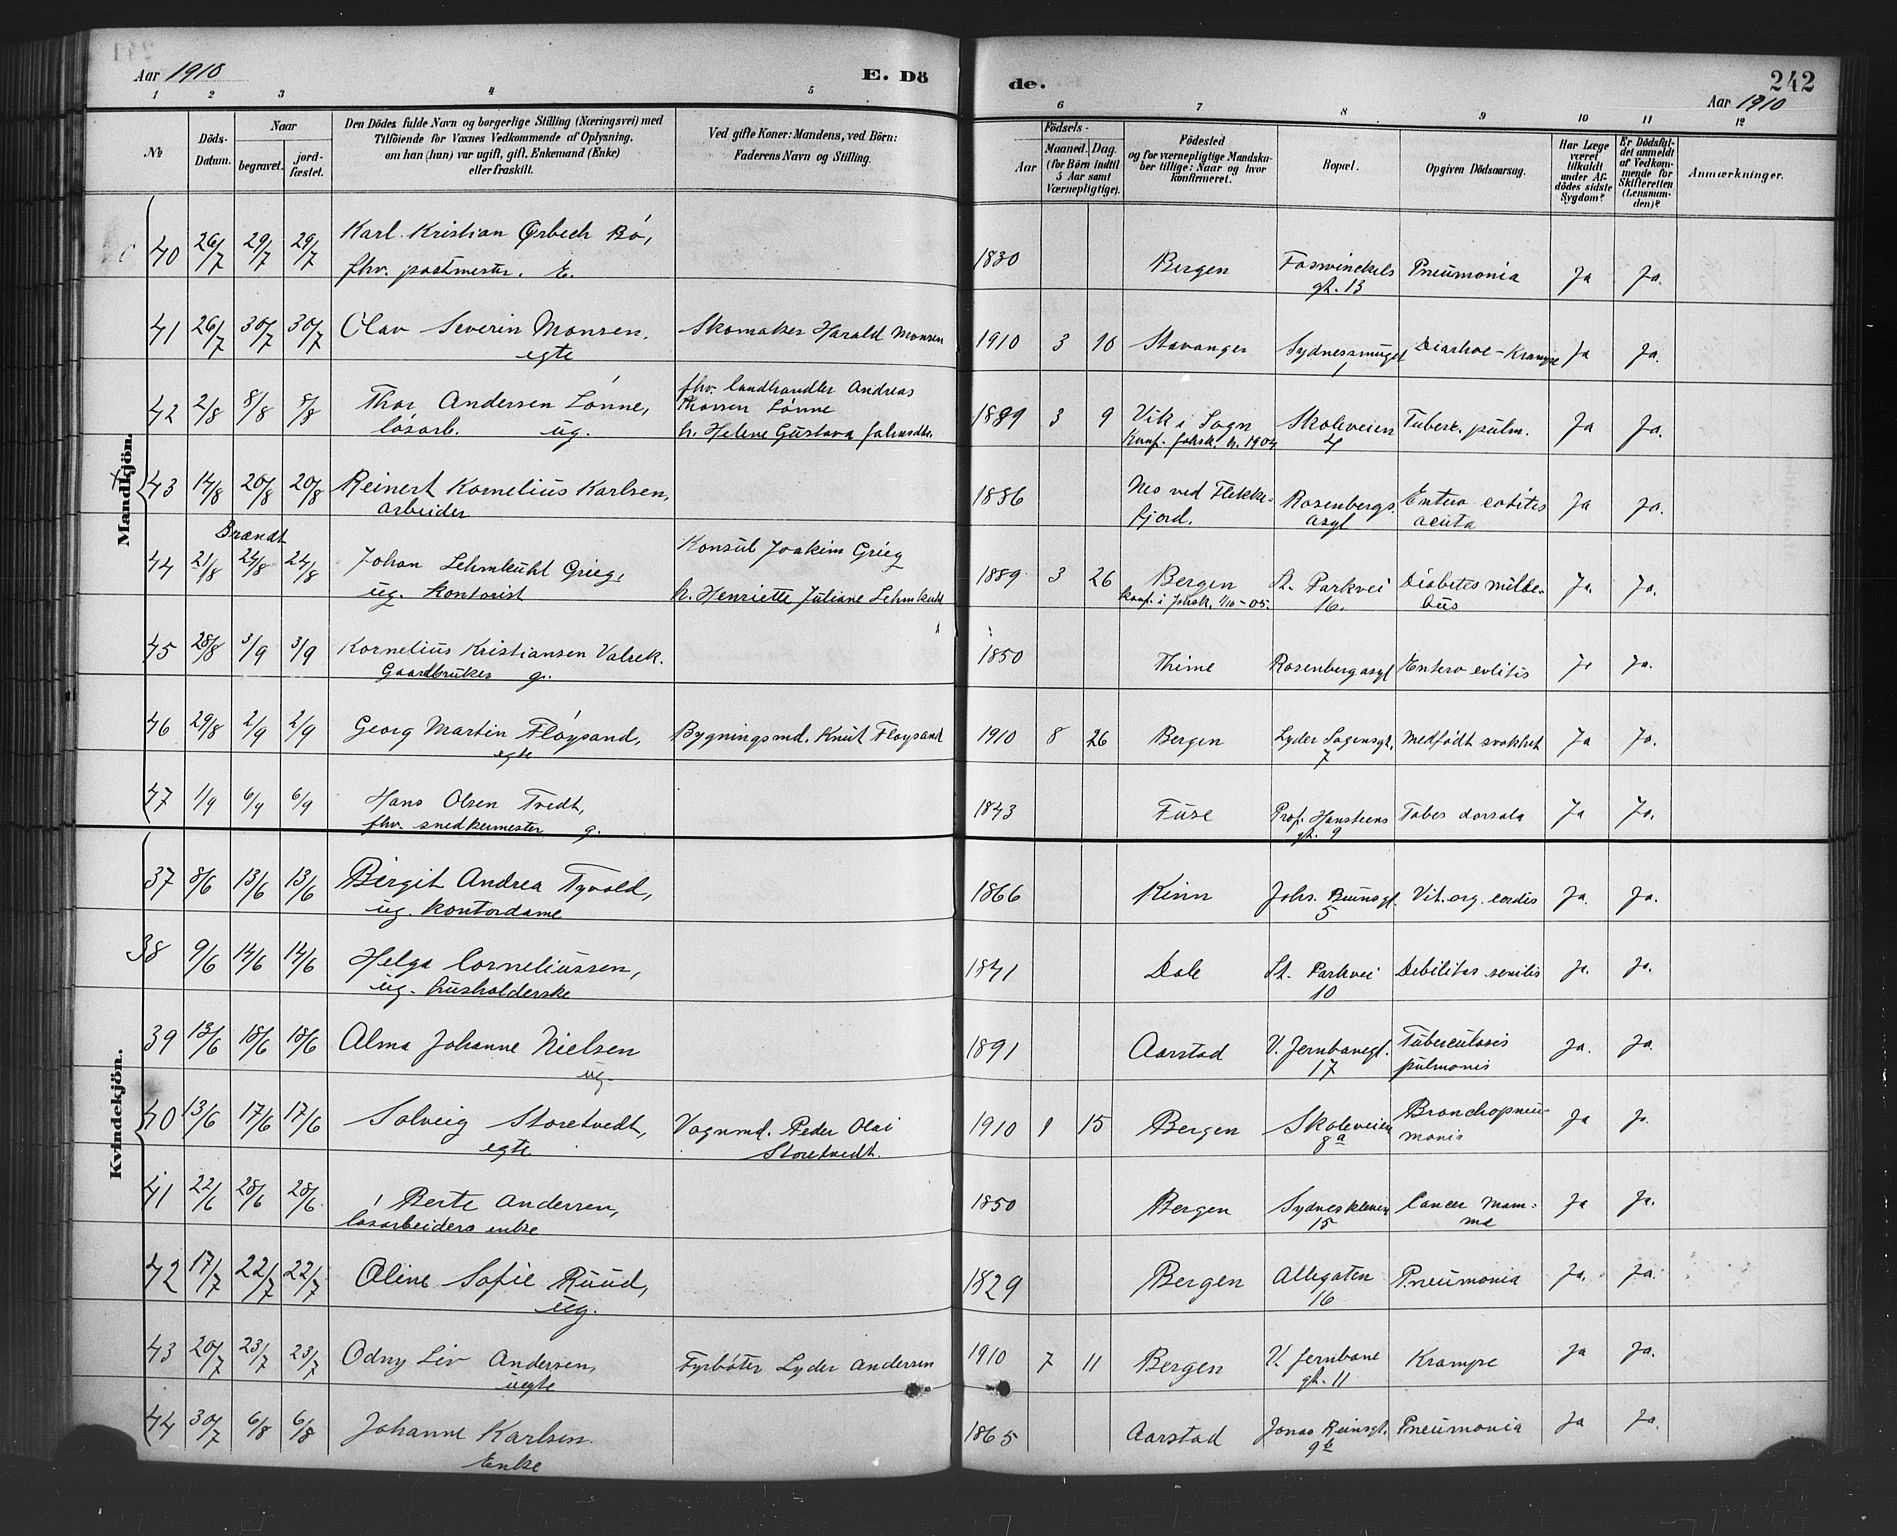 Aar 1910
E. Dö
de.
242
Aar 1910
1 2 3 4 5
6 7 8 9 10 11 12
№
Döds-Datum.
Naar
begravet.
jord-fæstet.
Den Dödes fulde Navn og borgerlige Stilling (Næringsvei) med
Tilföiende for Voxnes Vedkommende af Oplysning,
om han (hun) var ugift, gift, Enkemand (Enke)
eller fraskilt.
Ved gifte Koner: Mandens, ved Börn:
Faderens Navn og Stilling.
Födsels-
Aar
Maaned.
Dag.
(for Börn indtil
5 Aar samt
Værnepligtige).
Födested
og for værnepligtige Mandska-
ber tillige: Naar og hvor
konfirmeret.
Bopæl.
Opgiven Dödsaarsag.
Har Læge
været
tilkaldt
under Af-
dödes sidste
Sygdom?
Er Dödsfal-
det anmeldt
af Vedkom-
mende for
Skifteretten
(Lensman-
den)?
Anmærkninger.
Mandkjön.
40 26/7 29/7 29/7 Karl Kristian Ørbech Bö, 1830 Bergen Foswinckels Pneumonia Ja Ja.
fhv. postmester. E. gt. 13
41 26/7 30/7 30/7 Olav Severin Monsen, Skomaker Harald Monsen 1910 3 10 Stavanger Sydnessmuget Diarhoe-Krampe Ja Ja.
egte
42 2/8 8/8 8/8 Thor Andersen Lönne, fhv. landhandler Andreas 1889 3 9 Vik i Sogn Skoleveien Tuberk. pulm. Ja Ja.
Thorsen Lönne
lösarb. ug. h. Helene Gustava Johnsdtr. Konf. Johsk. h. 1904 4
43 14/8 20/8 20/8 Reinert Kornelius Karlsen, 1886 Nes ved Flekke- Rosenbergs Entero colites Ja Ja.
arbeider fjord. asyl acuta
Brændt
44 21/8 24/8 24/8 Johan Lehmkuhl Grieg, Konsul Joakim Grieg 1889 3 26 Bergen St. Parkvei Diabetes milde- Ja. Ja.
ug. kontorist h. Henriette Juliane Lehmkuhl konf. i Johsk. 1/10-05. 16. bus
45 28/8 3/9 3/9 Kornelius Kristiansen Valrek. 1850 Thime Rosenbergasyl Entero colitis Ja Ja.
Gaardbruker g.
46 29/8 2/9 2/9 Georg Martin Flöysand, Bygningsmd. Knut Flöysand 1910 8 26 Bergen Lyder Sagensgt. Medfödt svakhet Ja Ja.
egte 7
47 1/9 6/9 6/9 Hans Olsen Tvedt, 1843 Fuse Prof. Hansteens Tabes dorsala Ja Ja.
fhv. snedkermester g. gt. 9
Kvindekjön.
37 8/6 13/6 13/6 Birgit Andrea Tyvold, 1866 Kinn Johs. Bruunsgt. Vit. org. cordis Ja. Ja.
ug. kontordame 5
38 9/6 14/6 14/6 Helga Corneliussen, 1841 Dale St. Parkvei Debilitas senilis Ja. Ja.
ug. husholderske 10
39 13/6 18/6 18/6 Alma Johanne Nielsen 1891 Aarstad V. Jernbanegt. Tuberculosis Ja. Ja.
ug. 17 pulmonis
40 13/6 17/6 17/6 Solveig Storetvedt, Vognmd. Peder Olai 1910 1 15 Bergen Skoleveien Bronchopneu- Ja Ja.
egte Storetvedt. 8a monia
41 22/6 28/6 28/6 Berte Andersen, 1850 Bergen Sydneskleven Cancer Mam- Ja Ja.
lösarbeiders enke 15 ma
42 17/7 22/7 22/7 Oline Sofie Ruud, 1829 Bergen Allegaten Pneumonia Ja. Ja.
ug. 16
43 20/7 23/7 23/7 Odny Liv Andersen, Fyrböter Lyder Andersen 1910 7 11 Bergen V. Jernbane Krampe Ja Ja.
uegte gt. 11
44 30/7 6/8 6/8 Johanne Karlsen. 1865 Aarstad Jonas Reinsgt. Pneumonia Ja Ja.
Enke 9b